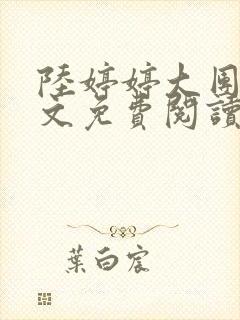 陸婷婷大團
文免費閱讀
葉白宸